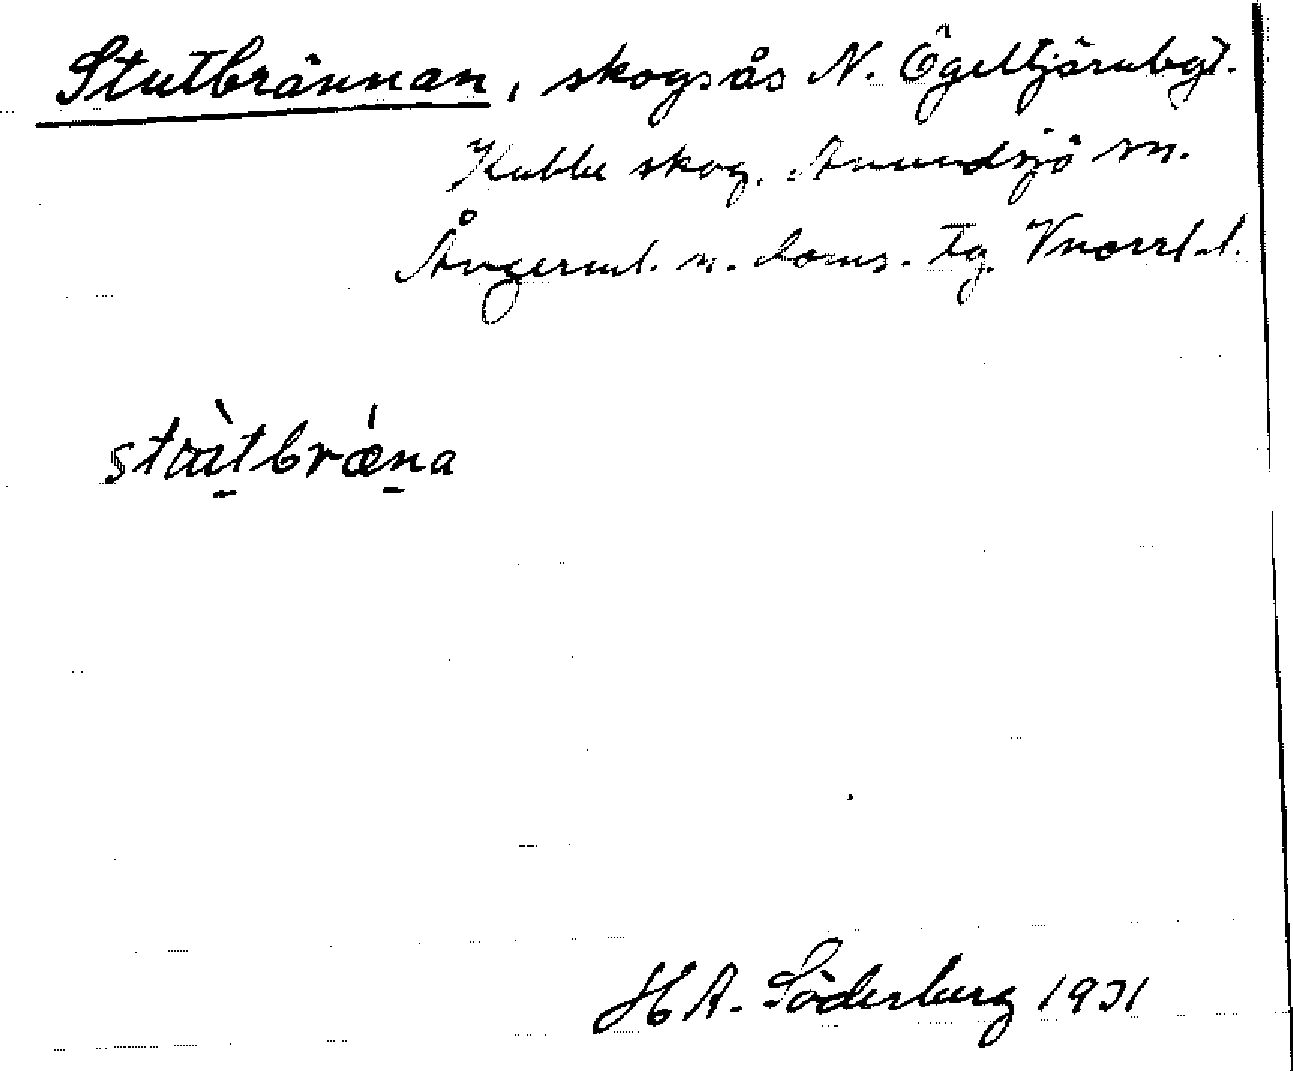 Stutbrännan, skogsås N. Ögeltjärnbgt.
Kubbe skog. Anundsjö sn.
Ångerml. n. doms. tg. Vnorrl. l.
H A. Söderberg 1931